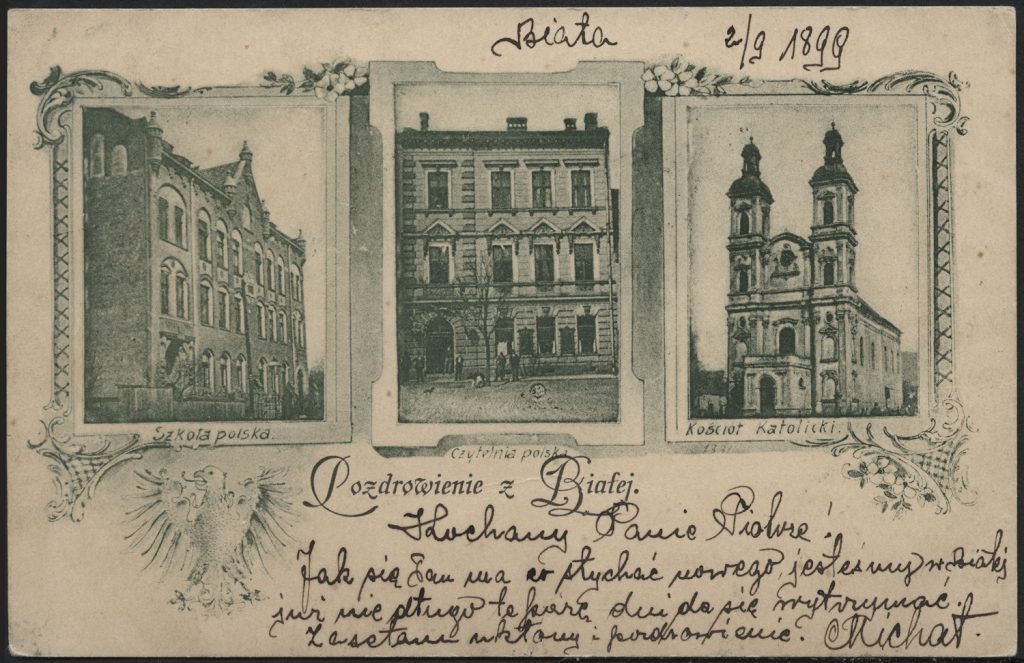 Biała 2/9 1899
Szkoła polska.
Czytelnia polska
Kościoł Katolicki.
Pozdrowienie z Białej.
Kochany Panie Piotrze!
Jak się Pan ma co słychać nowego, jesteśmy w Białej
już nie długo te parę dni da się wytrzymać.
Zasełam ukłony i pozdrowienie. Michał.